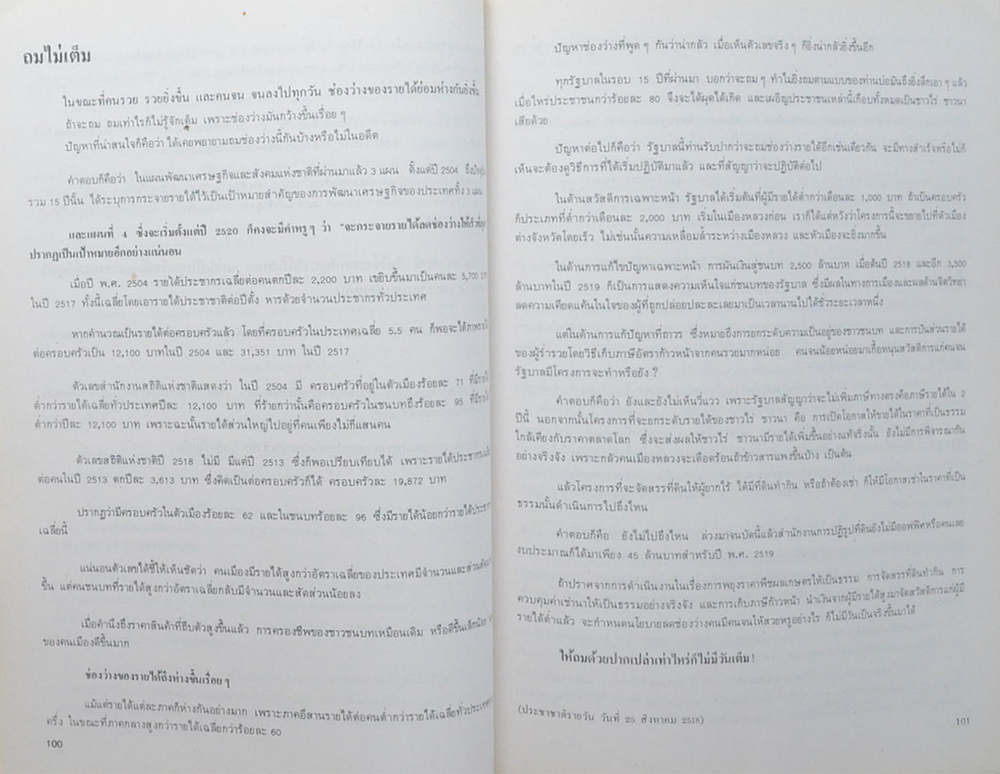 ถมไม่เต็ม
ในขณะที่คนรวย รวยยิ่งขึ้น และคนจน จนลงไปทุกวัน ช่องว่างของรายได้ย่อมห่างกันยิ่งขึ้น
ถ้าจะถม ถมเท่าไรก็ไม่รู้จักเต็ม เพราะช่องว่างมันกว้างขึ้นเรื่อย ๆ
ปัญหาที่น่าสนใจก็คือว่า ได้เคยพยายามถมช่องว่างนี้กันบ้างหรือไม่ในอดีต
คำตอบก็คือว่า ในแผนพัฒนาเศรษฐกิจและสังคมแห่งชาติที่ผ่านมาแล้ว 3 แผน ตั้งแต่ปี 2504
รวม 15 ปีนั้น ได้ระบุการกระจายรายได้ไว้เป็นเป้าหมายสำคัญของการพัฒนาเศรษฐกิจของประเทศทั้ง 3 แผน
และแผนที่ 4 ซึ่งจะเริ่มตั้งแต่ปี 2520 ก็คงจะมีคำหรู ๆ ว่า "จะกระจายรายได้ลดช่องว่างให้เร็ว
ปรากฏเป็นเป้าหมายอีกอย่างแน่นอน
เมื่อปี พ.ศ. 2504 รายได้ประชากรเฉลี่ยต่อคนตกปีละ 2,200 บาท เขยิบขึ้นมาเป็นคนละ 5,700 บาท
ในปี 2517 ทั้งนี้เฉลี่ยโดยเอารายได้ประชาชาติต่อปีตั้ง หารด้วยจำนวนประชากรทั่วประเทศ
หากคำนวณเป็นรายได้ต่อครอบครัวแล้ว โดยที่ครอบครัวในประเทศเฉลี่ย 5.5 คน ก็พอจะได้
ต่อครอบครัวเป็น 12,100 บาทในปี 2504 และ 31,351 บาท ในปี 2517
ตัวเลขสำนักงานสถิติแห่งชาติแสดงว่า ในปี 2504 มี ครอบครัวที่อยู่ในตัวเมืองร้อยละ 71 ที่มีรายได้
ต่ำกว่ารายได้เฉลี่ยทั่วประเทศปีละ 12,100 บาท ที่ร้ายกว่านั้นคือครอบครัวในชนบทถึงร้อยละ 95 ที่มีรายได้
ต่ำกว่าปีละ 12,100 บาท เพราะฉะนั้นรายได้ส่วนใหญ่ไปอยู่ที่คนเพียงไม่กี่แสนคน
ตัวเลขสถิติแห่งชาติปี 2518 ไม่มี มีแต่ปี 2513 ซึ่งก็พอเปรียบเทียบได้ เพราะรายได้ประชากรเฉลี่ย
ต่อคนในปี 2513 ตกปีละ 3,613 บาท ซึ่งคิดเป็นต่อครอบครัวก็ได้ ครอบครัวละ 19,872 บาท
ปรากฏว่ามีครอบครัวในตัวเมืองร้อยละ 62 และในชนบทร้อยละ 96 ซึ่งมีรายได้น้อยกว่ารายได้ประชากร
เฉลี่ยนี้
แน่นอนตัวเลขได้ชี้ให้เห็นชัดว่า คนเมืองมีรายได้สูงกว่าอัตราเฉลี่ยของประเทศมีจำนวนและส่วนสัด
ขึ้น แต่คนชนบทที่รายได้สูงกว่าอัตราเฉลี่ยกลับมีจำนวนและสัดส่วนน้อยลง
เมื่อคำนึงถึงราคาสินค้าที่ขึบตัวสูงขึ้นแล้ว การครองชีพของชาวชนบทเหมือนเดิม หรือดีขึ้นเล็กน้อย
ของคนเมืองดีขึ้นมาก
ช่องว่างของรายได้ถึงห่างขึ้นเรื่อย ๆ
แม้แต่รายได้แต่ละภาคก็ห่างกันอย่างมาก เพราะภาคอีสานรายได้ต่อคนต่ำกว่ารายได้เฉลี่ยทั่วประเทศ
ครึ่ง ในขณะที่ภาคกลางสูงกว่ารายได้เฉลี่ยกว่าร้อยละ 60
100
ปัญหาช่องว่างที่พูด ๆ กันว่าน่ากลัว เมื่อเห็นตัวเลขจริง ๆ ก็ยิ่งน่ากลัวยิ่งขึ้นอีก
ทุกรัฐบาลในรอบ 15 ปีที่ผ่านมา บอกว่าจะถม ๆ ทำไมยิ่งถมตามแบบของท่านบ่อมันถึงยิ่งลึกเอา ๆ แล้ว
เมื่อไหร่ประชาชนกว่าร้อยละ 80 จึงจะได้ผุดได้เกิด และเผอิญประชาชนเหล่านี้เกือบทั้งหมดเป็นชาวไร่ ชาวนา
เสียด้วย
ปัญหาต่อไปก็คือว่า รัฐบาลนี้ท่านรับปากว่าจะถมช่องว่างรายได้อีกเช่นเดียวกัน จะมีทางสำเร็จหรือไม่ก็
เห็นจะต้องดูวิธีการที่ได้เริ่มปฏิบัติมาแล้ว และที่สัญญาว่าจะปฏิบัติต่อไป
ในด้านสวัสดิการเฉพาะหน้า รัฐบาลได้เริ่มต้นที่ผู้มีรายได้ต่ำกว่าเดือนละ 1,000 บาท ถ้าเป็นครอบครัว
ก็ประเภทที่ต่ำกว่าเดือนละ 2,000 บาท เริ่มในเมืองหลวงก่อน เราก็ได้แต่หวังว่าโครงการนี้จะขยายไปที่หัวเมือง
ต่างจังหวัดโดยเร็ว ไม่เช่นนั้นความเหลื่อมล้ำระหว่างเมืองหลวง และหัวเมืองจะยิ่งมากขึ้น
ในด้านการแก้ไขปัญหาเฉพาะหน้า การผันเงินสู่ชนบท 2,500 ล้านบาท เมื่อต้นปี 2518 และอีก 3,500
ล้านบาทในปี 2519 ก็เป็นการแสดงความเห็นใจแก่ชนบทของรัฐบาล ซึ่งมีผลในทางการเมืองและผลด้านจิตวิทยา
ลดความเคียดแค้นในใจของผู้ที่ถูกปล่อยปละละเลยมาเป็นเวลานานไปได้ชั่วระยะเวลาหนึ่ง
แต่ในด้านการแก้ปัญหาที่ถาวร ซึ่งหมายถึงการยกระดับความเป็นอยู่ของชาวชนบท และการปันส่วนรายได้
ของผู้ร่ำรวยโดยวิธีเก็บภาษีอัตราก้าวหน้าจากคนรวยมากหน่อย คนจนน้อยหน่อยมาเกื้อหนุนสวัสดิการแก่คนจน
รัฐบาลมีโครงการจะทำหรือยัง ?
คำตอบก็คือว่า ยังและยังไม่เห็นวี่แวว เพราะรัฐบาลสัญญาว่าจะไม่เพิ่มภาษีทางตรงคือภาษีรายได้ใน 2
ปีนี้ นอกจากนั้นโครงการที่จะยกระดับรายได้ของชาวไร่ ชาวนา คือ การเปิดโอกาสให้ขายได้ในราคาที่เป็นธรรม
ใกล้เคียงกับราคาตลาดโลก ซึ่งจะส่งผลให้ชาวไร่ ชาวนามีรายได้เพิ่มขึ้นอย่างแท้จริงนั้น ยังไม่มีการพิจารณากัน
อย่างจริงจัง เพราะกลัวคนเมืองหลวงจะเดือดร้อนถ้าข้าวสารแพงขึ้นบ้าง เป็นต้น
แล้วโครงการที่จะจัดสรรที่ดินให้ผู้ยากไร้ ได้มีที่ดินทำกิน หรือถ้าต้องเช่า ก็ให้มีโอกาสเช่าในราคาที่เป็น
ธรรมนั้นดำเนินการไปถึงไหน
คำตอบก็คือ ยังไม่ไปถึงไหน ล่วงมาจนบัดนี้แล้วสำนักงานการปฏิรูปที่ดินยังไม่มีออฟฟิศหรือคนเลย
งบประมาณก็ได้มาเพียง 45 ล้านบาทสำหรับปี พ.ศ. 2519
ถ้าปราศจากการดำเนินงานในเรื่องการพยุงราคาพืชผลเกษตรให้เป็นธรรม การจัดสรรที่ดินทำกิน การ
ควบคุมค่าเช่านาให้เป็นธรรมอย่างจริงจัง และการเก็บภาษีก้าวหน้า นำเงินจากผู้มีรายได้สูงมาจัดสวัสดิการแก่ผู้มี
รายได้ต่ำแล้ว จะกำหนดนโยบายลดช่องว่างคนมีคนจนให้สวยหรูอย่างไร ก็ไม่มีวันเป็นจริงขึ้นมาได้
ให้ถมด้วยปากเปล่าเท่าไหร่ก็ไม่มีวันเต็ม !
(ประชาชาติรายวัน วันที่ 25 สิงหาคม 2518)
101